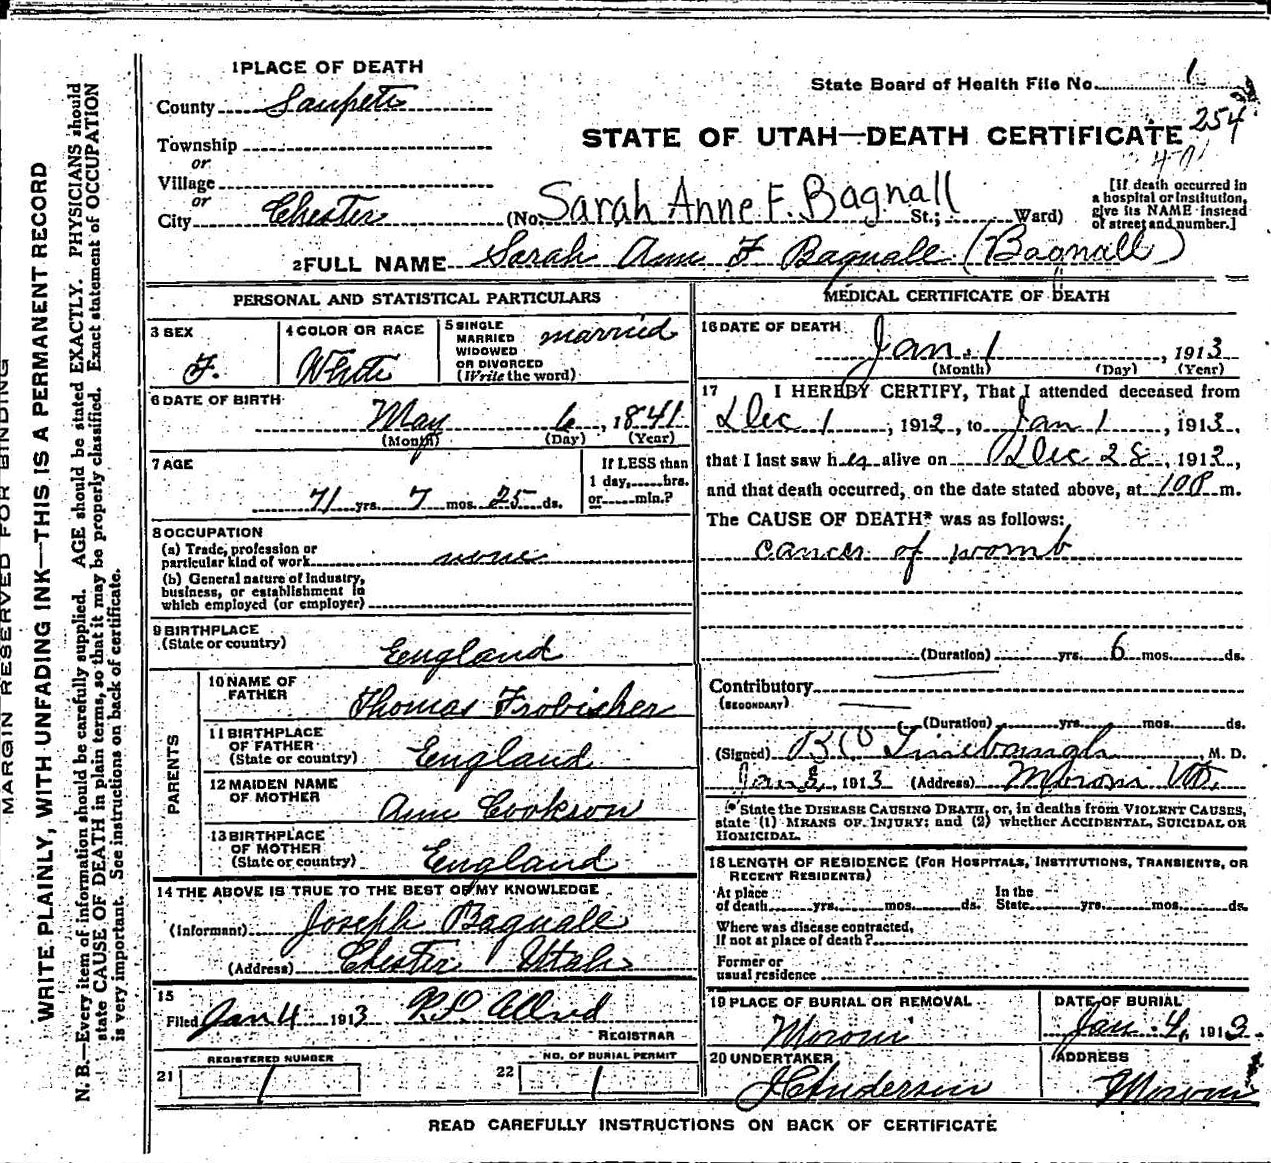 MARGIN RESERVED FOR BINDING
WRITE PLAINLY, WITH UNFADING INK—THIS IS A PERMANENT RECORD
N. B.—Every item of information should be carefully supplied. AGE should be stated EXACTLY. PHYSICIANS should
state CAUSE OF DEATH in plain terms, so that it may be properly classified. Exact statement of OCCUPATION
is very important. See instructions on back of certificate.
1 PLACE OF DEATH
County Sanpete
Township
or
Village
or
City Chester
State Board of Health File No. 1
254
STATE OF UTAH—DEATH CERTIFICATE
(No. Sarah Anne F. Bagnall St.; Ward)
[If death occurred in
a hospital or institution,
give its NAME instead
of street and number.]
2 FULL NAME Sarah Ann F Bagnall (Bagnall)
PERSONAL AND STATISTICAL PARTICULARS
3 SEX
F.
4 COLOR OR RACE
White
5 SINGLE
MARRIED
WIDOWED
OR DIVORCED
(Write the word)
married
6 DATE OF BIRTH
May 6, 1841
(Month) (Day) (Year)
7 AGE
71 yrs. 7 mos. 25 ds.
If LESS than
1 day, hrs.
or min.?
8 OCCUPATION
(a) Trade, profession or
particular kind of work none
(b) General nature of Industry,
business, or establishment in
which employed (or employer)
9 BIRTHPLACE
(State or country)
England
PARENTS
10 NAME OF
FATHER
Thomas Frobisher
11 BIRTHPLACE
OF FATHER
(State or country)
England
12 MAIDEN NAME
OF MOTHER
Ann Cookson
13 BIRTHPLACE
OF MOTHER
(State or country)
England
14 THE ABOVE IS TRUE TO THE BEST OF MY KNOWLEDGE
(Informant) Joseph Bagnall
(Address) Chester Utah
15
Filed Jan 4 1913 R.P. Allred
REGISTRAR
REGISTERED NUMBER
21 1
NO. OF BURIAL PERMIT
22 1
MEDICAL CERTIFICATE OF DEATH
16 DATE OF DEATH
Jan. 1, 1913
(Month) (Day) (Year)
17 I HEREBY CERTIFY, That I attended deceased from
Dec 1, 1912, to Jan 1, 1913,
that I last saw her alive on Dec 28, 1912,
and that death occurred, on the date stated above, at m.
The CAUSE OF DEATH* was as follows:
cancer of womb
(Duration) yrs. 6 mos. ds.
Contributory
(SECONDARY)
(Duration) yrs. mos. ds.
(Signed) Linebaugh M. D.
Jan 1913 (Address) Moroni Ut.
* State the DISEASE CAUSING DEATH, or, in deaths from VIOLENT CAUSES,
state (1) MEANS OF INJURY; and (2) whether ACCIDENTAL, SUICIDAL OR
HOMICIDAL.
18 LENGTH OF RESIDENCE (FOR HOSPITALS, INSTITUTIONS, TRANSIENTS, OR
RECENT RESIDENTS)
At place
of death yrs. mos. ds.
In the
State yrs. mos. ds.
Where was disease contracted,
If not at place of death?
Former or
usual residence
19 PLACE OF BURIAL OR REMOVAL
Moroni
DATE OF BURIAL
Jan. 4, 1913
20 UNDERTAKER
J C Anderson
ADDRESS
Moroni
READ CAREFULLY INSTRUCTIONS ON BACK OF CERTIFICATE